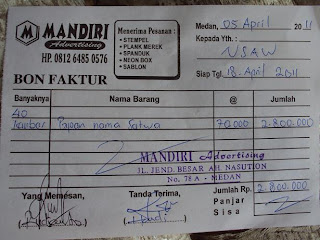 MANDIRI
Advertising
HP. 0812 6485 0576
Menerima Pesanan :
• STEMPEL
• PLANK MEREK
• SPANDUK
• NEON BOX
• SABLON
Medan, 05 April 2011
Kepada Yth. :
NSAW
Siap Tgl 18 April 2011
BON FAKTUR
Banyaknya Nama Barang @ Jumlah
40
Lembar Papan nama Satwa 70.000 2.800.000
MANDIRI Advertising
JL. JEND. BESAR AH. NASUTION
No. 78 A - MEDAN
Yang Memesan, Tanda Terima, Jumlah Rp. 2.800.000
Panjar
Sisa